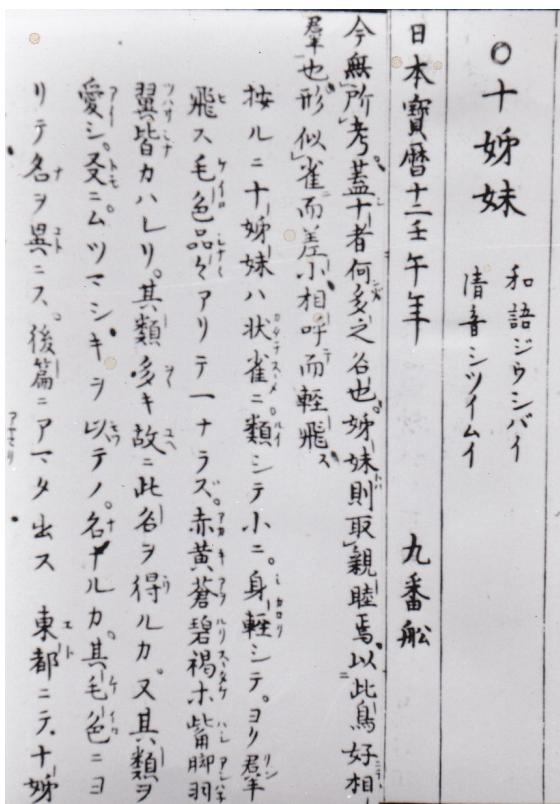 〇十姊妹
和語ジウシバイ
清音シツイムイ
日本寳曆十二壬午年 九番舩
今無所考蓋十者何多之名也姊妹則取親睦焉以此鳥好相
羣也形似雀而差小相呼而輕飛
按ルニ十姊妹ハ状雀ニ類シテ小ニ。身輕シテ。ヨリ羣
飛ス毛色品々アリテ一ナラズ。赤黄蒼碧褐ホ觜脚羽
翼皆カハレリ。其類多キ故ニ此名ヲ得ルカ。又其類ヲ
愛シ。互ニムツマシキヲ以テノ。名ナルカ。其毛色ニヨ
リテ名ヲ異ニス。後篇ニアマタ出ス 東都ニテ十姊